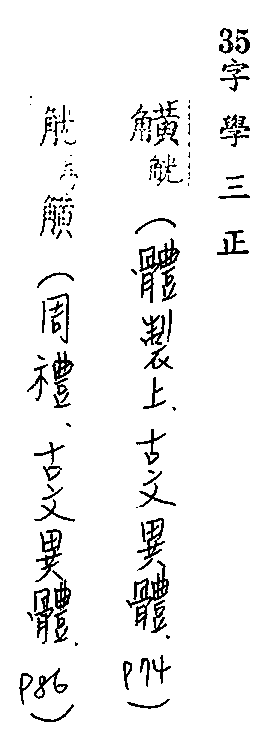 35字學三正
觵觥（體製上、古文異體、P74）
觥觵（周禮、古文異體、P86）